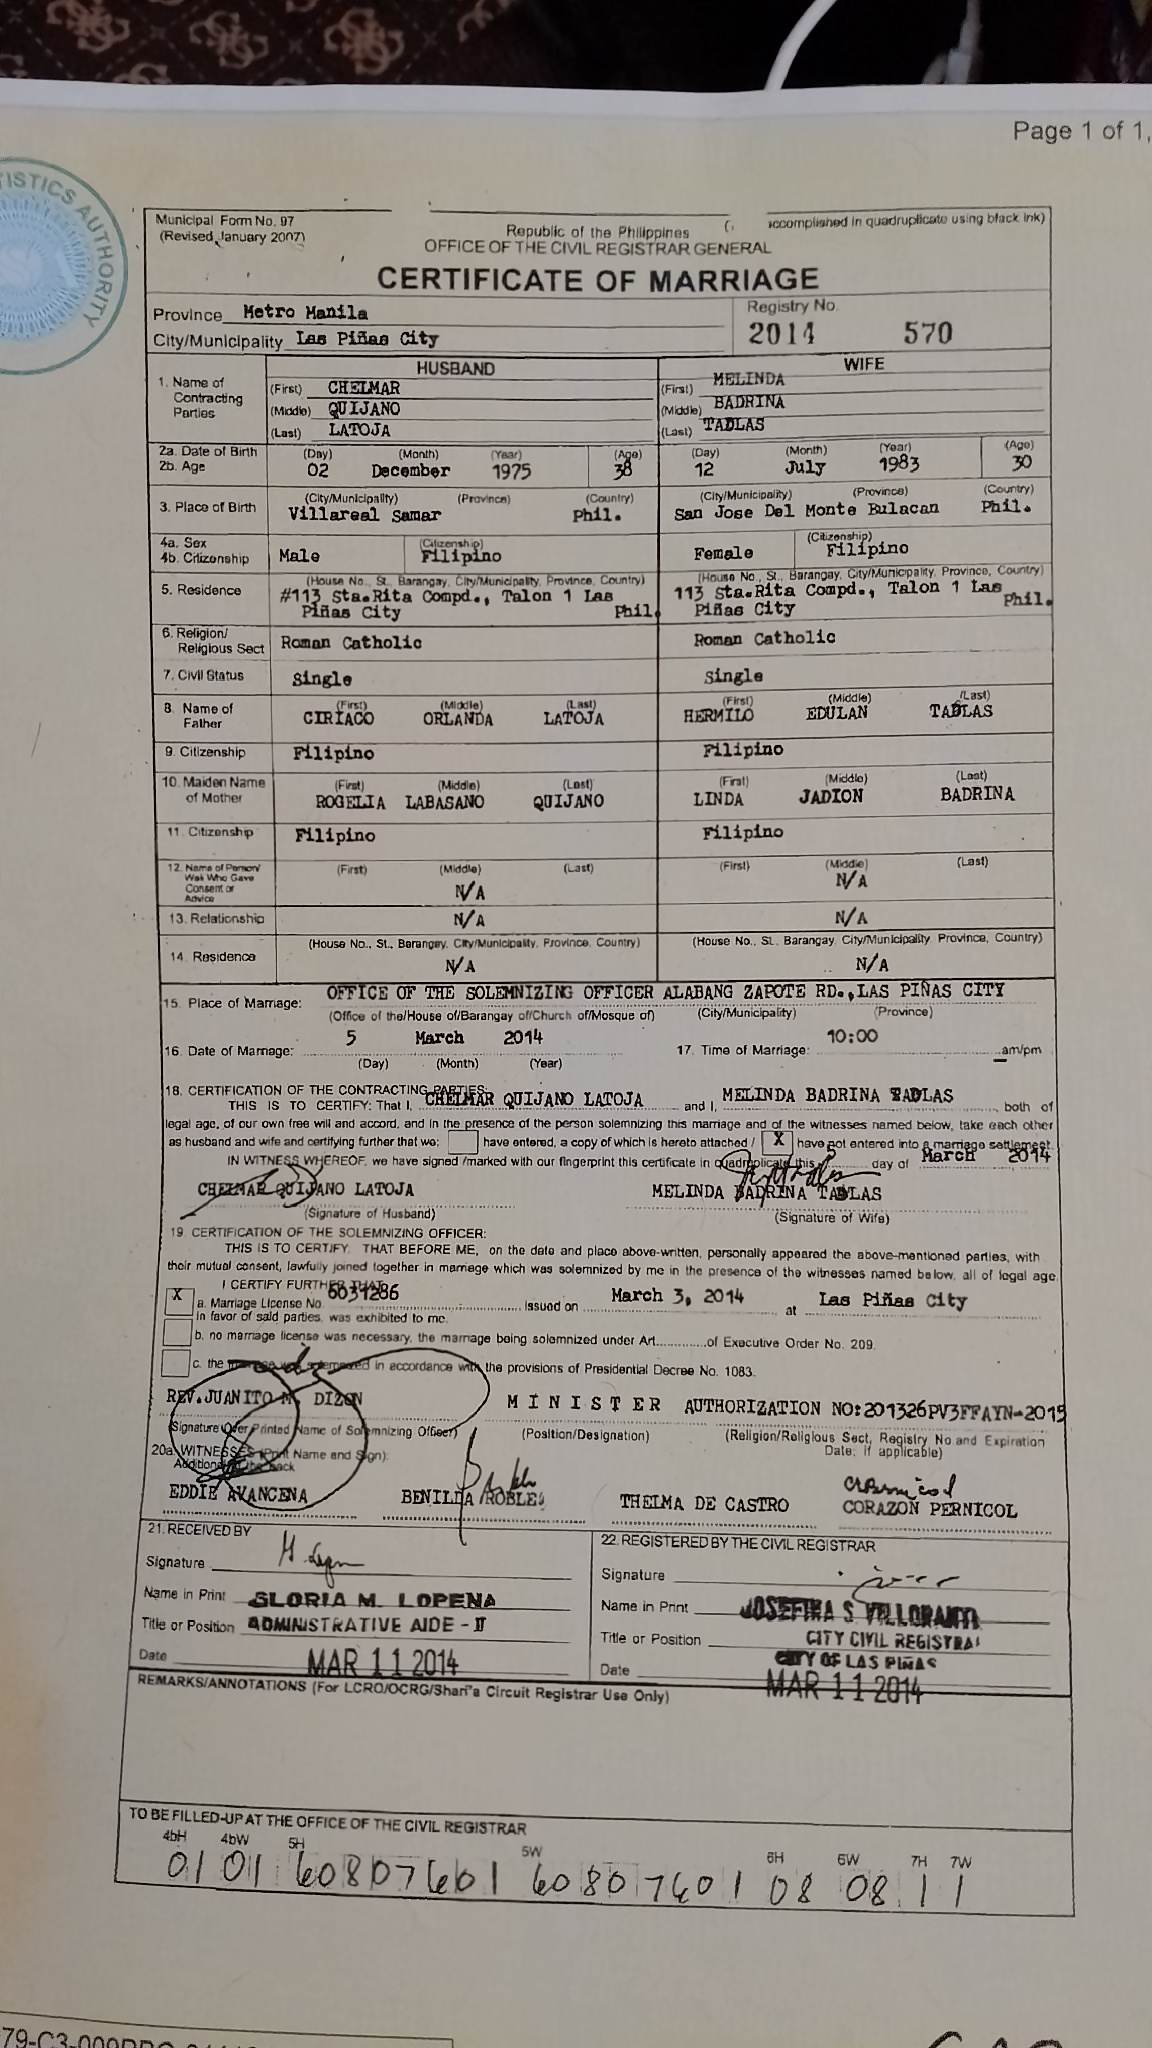 Page 1 of 1,
TISTICS AUTHORITY
Municipal Form No. 97
(Revised January 2007)
Republic of the Philippines
OFFICE OF THE CIVIL REGISTRAR GENERAL
accomplished in quadruplicate using black ink)
CERTIFICATE OF MARRIAGE
Province Metro Manila
City/Municipality Las Piñas City
Registry No.
2014 570
HUSBAND WIFE
1. Name of Contracting Parties
(First) CHELMAR (First) MELINDA
(Middle) QUIJANO (Middle) BADRINA
(Last) LATOJA (Last) TADLAS
2a. Date of Birth (Day) (Month) (Year) (Age) (Day) (Month) (Year) (Age)
2b. Age 02 December 1975 38 12 July 1983 30
3. Place of Birth (City/Municipality) (Province) (Country) (City/Municipality) (Province) (Country)
Villareal Samar Phil. San Jose Del Monte Bulacan Phil.
4a. Sex (Citizenship) (Citizenship)
4b. Citizenship Male Filipino Female Filipino
5. Residence (House No., St., Barangay, City/Municipality, Province, Country) (House No., St., Barangay, City/Municipality, Province, Country)
#113 Sta.Rita Compd., Talon 1 Las 113 Sta.Rita Compd., Talon 1 Las
Piñas City Phil. Piñas City Phil.
6. Religion/
Religious Sect Roman Catholic Roman Catholic
7. Civil Status Single Single
8. Name of Father (First) (Middle) (Last) (First) (Middle) (Last)
CIRIACO ORLANDA LATOJA HERMILO EDULAN TADLAS
9. Citizenship Filipino Filipino
10. Maiden Name of Mother (First) (Middle) (Last) (First) (Middle) (Last)
ROGELIA LABASANO QUIJANO LINDA JADION BADRINA
11. Citizenship Filipino Filipino
12. Name of Person/ Wali Who Gave Consent or Advice (First) (Middle) (Last) (First) (Middle) (Last)
N/A N/A
13. Relationship N/A N/A
14. Residence (House No., St., Barangay, City/Municipality, Province, Country) (House No., St., Barangay, City/Municipality Province, Country)
N/A N/A
15. Place of Marriage: OFFICE OF THE SOLEMNIZING OFFICER ALABANG ZAPOTE RD.,LAS PIÑAS CITY
(Office of the/House of/Barangay of/Church of/Mosque of) (City/Municipality) (Province)
16. Date of Marriage: 5 March 2014 17. Time of Marriage: 10:00 am/pm
(Day) (Month) (Year)
18. CERTIFICATION OF THE CONTRACTING PARTIES:
THIS IS TO CERTIFY: That I, CHELMAR QUIJANO LATOJA and I, MELINDA BADRINA TADLAS both of
legal age, of our own free will and accord, and in the presence of the person solemnizing this marriage and of the witnesses named below, take each other
as husband and wife and certifying further that we: have entered, a copy of which is hereto attached / X have not entered into a marriage settlement.
IN WITNESS WHEREOF, we have signed /marked with our fingerprint this certificate in quadruplicate this 5 day of March 2014
CHELMAR QUIJANO LATOJA MELINDA BADRINA TADLAS
(Signature of Husband) (Signature of Wife)
19. CERTIFICATION OF THE SOLEMNIZING OFFICER:
THIS IS TO CERTIFY: THAT BEFORE ME, on the date and place above-written, personally appeared the above-mentioned parties, with
their mutual consent, lawfully joined together in marriage which was solemnized by me in the presence of the witnesses named below, all of legal age.
I CERTIFY FURTHER THAT
X a. Marriage License No. 6031286 issued on March 3, 2014 at Las Piñas City
in favor of said parties, was exhibited to me.
b. no marriage license was necessary, the marriage being solemnized under Art............of Executive Order No. 209.
c. the marriage was solemnized in accordance with the provisions of Presidential Decree No. 1083.
REV.JUANITO M. DIZON MINISTER AUTHORIZATION NO:201326PV3FFAYN-2015
(Signature Over Printed Name of Solemnizing Officer) (Position/Designation) (Religion/Religious Sect, Registry No.and Expiration
Date, if applicable)
20a. WITNESSES (Print Name and Sign):
Additional at the back
EDDIE AVANCENA BENILDA ROBLES THELMA DE CASTRO CORAZON PERNICOL
21. RECEIVED BY 22. REGISTERED BY THE CIVIL REGISTRAR
Signature Signature
Name in Print GLORIA M. LOPENA Name in Print JOSEFINA S.
Title or Position ADMINISTRATIVE AIDE - II Title or Position CITY CIVIL REGISTRAR
CITY OF LAS PIÑAS
Date MAR 11 2014 Date MAR 11 2014
REMARKS/ANNOTATIONS (For LCRO/OCRG/Shari'a Circuit Registrar Use Only)
TO BE FILLED-UP AT THE OFFICE OF THE CIVIL REGISTRAR
4bH 4bW 5H 5W 6H 6W 7H 7W
01 01 60807601 60807601 08 08 1 1